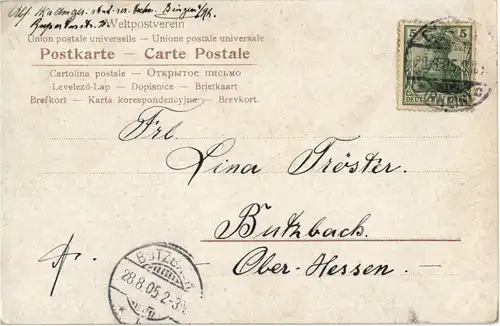 Weltpostverein
Union postale universelle – Unione postale universale
Postkarte – Carte Postale
Cartolina postale – Открытое письмо
Levelező-Lap – Dopisnice – Briefkaart
Brefkort – Karta korespondencyjna – Brevkort.
5 5
DEUTSCHES REICH
Frl.
Lina Tröster.
Butzbach.
Ober-Hessen.
BUTZBACH
28.8.05. 2-3